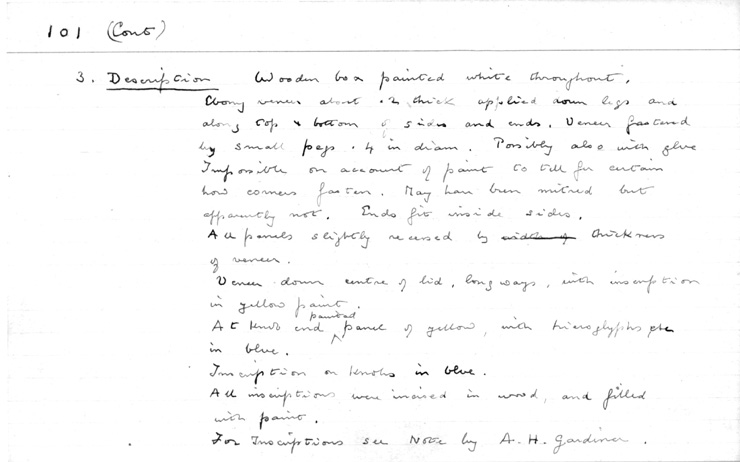 101 (Cont)
3. Description Wooden box painted white throughout.
Ebony veneer about .2 thick applied down legs and
along top & bottom of sides and ends. Veneer fastened
by small pegs .4 in diam. Possibly also with glue
Impossible on account of paint to tell for certain
how corners fasten. May have been mitred but
apparently not. Ends fit inside sides.
All panels slightly recessed by thickness
of veneer.
Veneer down centre of lid, longways, with inscription
in yellow paint.
At knob end painted panel of yellow, with hieroglyphs etc
in blue.
Inscription on knobs in blue.
All inscriptions were incised in wood, and filled
with paint.
For Inscriptions see Note by A. H. Gardiner.